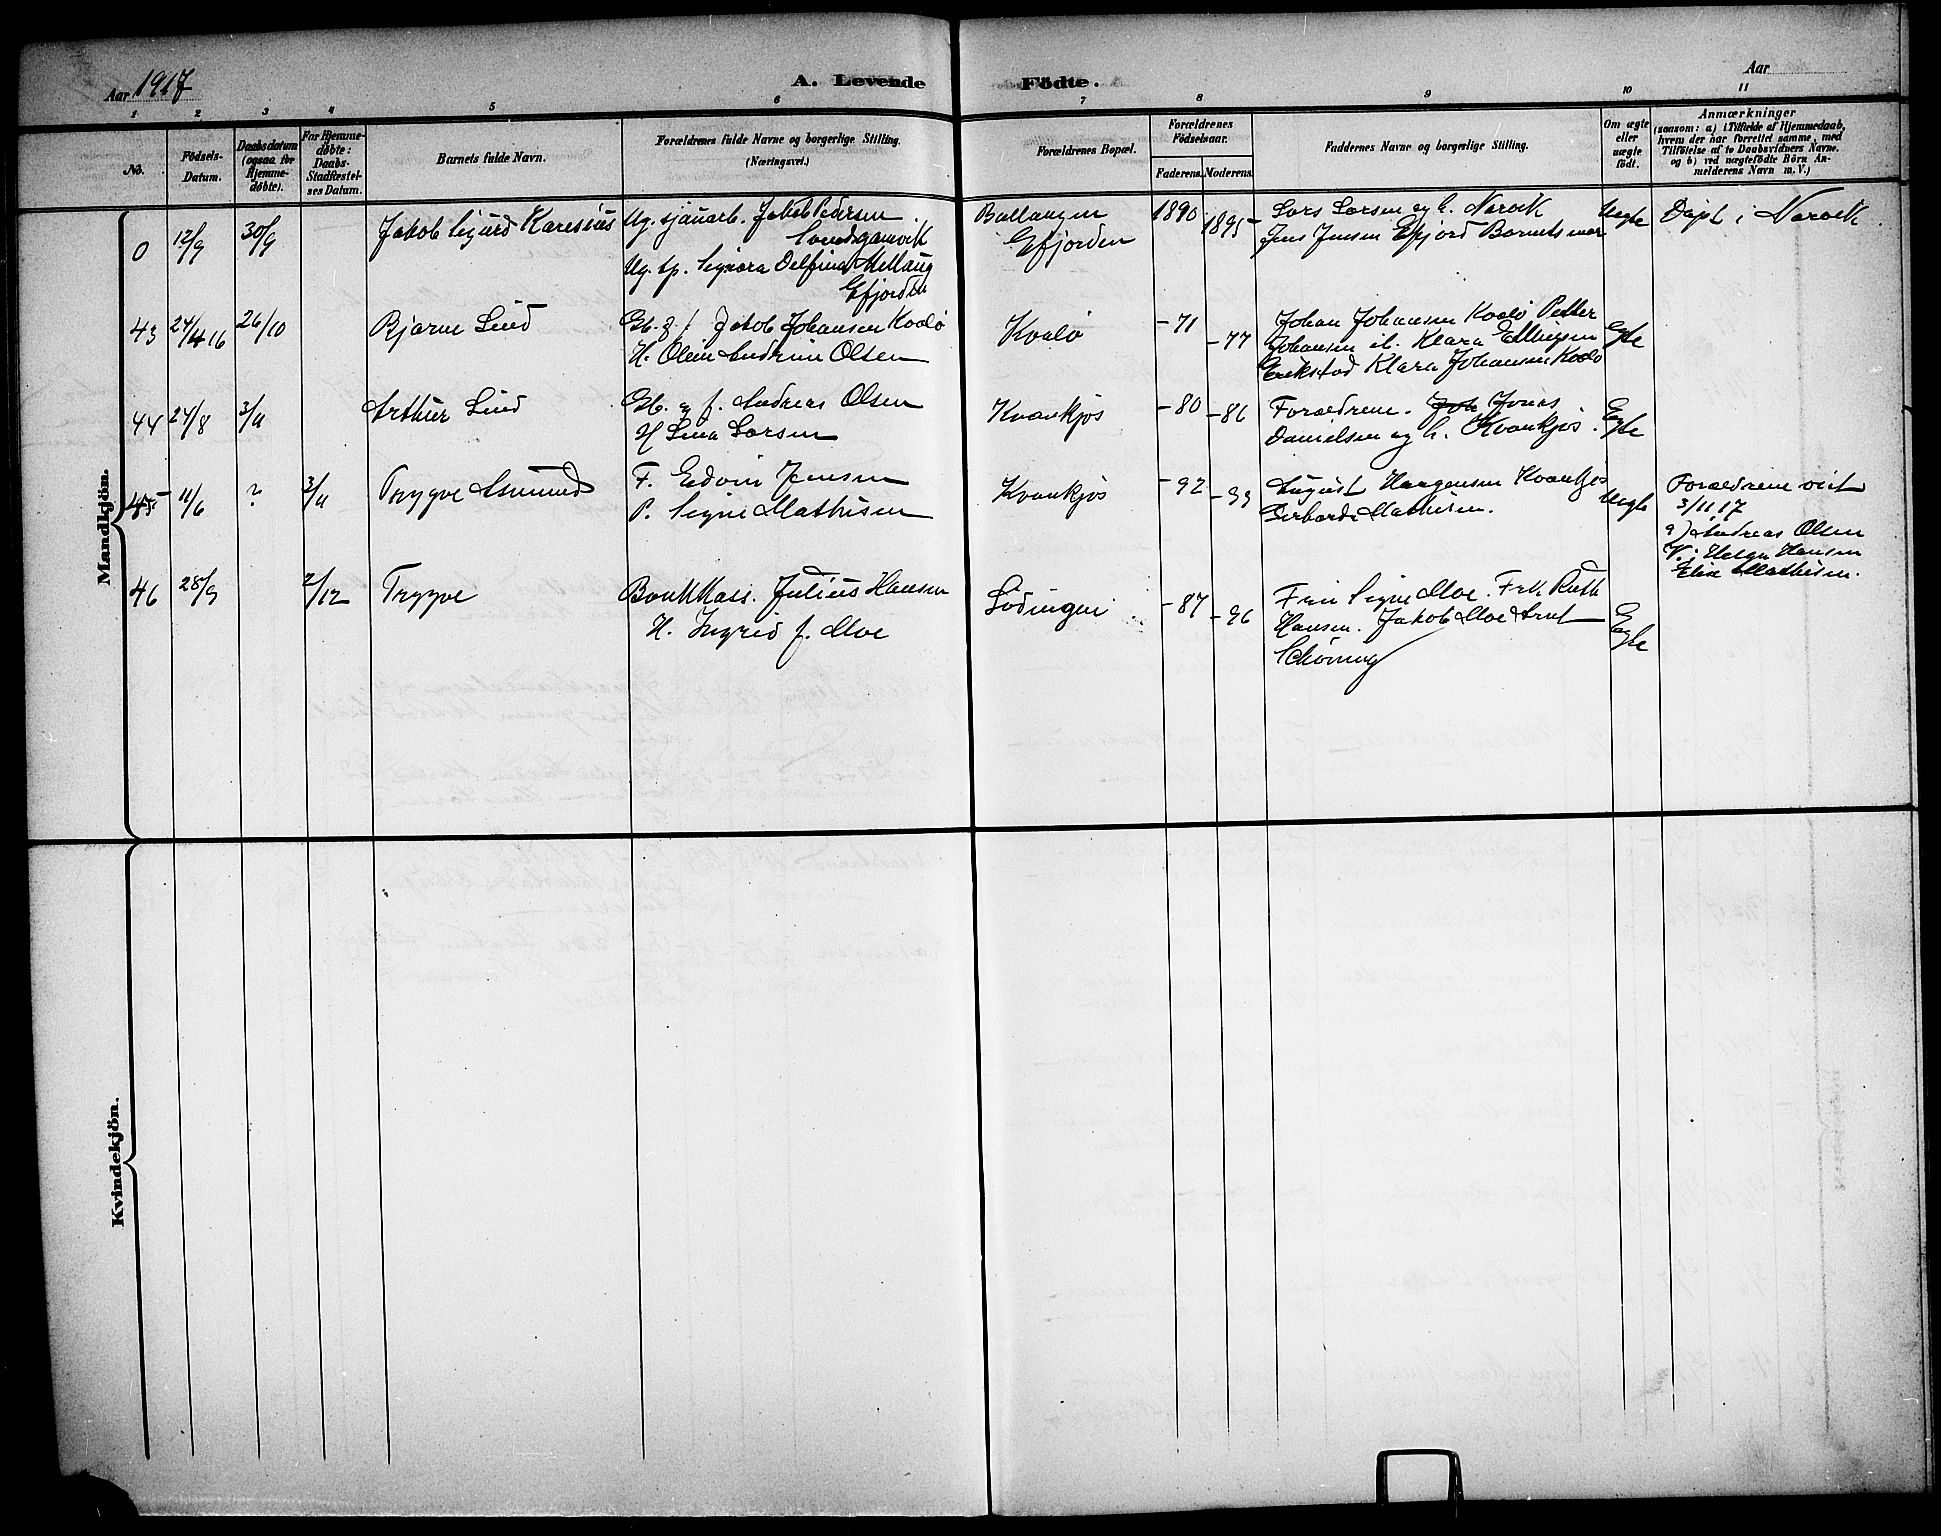 Aar 1917
A. Levende Födte.
Aar
1 2 3 4 5 6 7 8 9 10 11
No.
Födsels-
Datum.
Daabsdatum
(ogsaa for
Hjemme-
døbte).
For Hjemme-
døbte:
Daabs-
Stadfæstel-
ses Datum.
Barnets fulde Navn.
Forældrenes fulde Navne og borgerlige Stilling.
(Næringsvei.)
Forældrenes Bopæl.
Forældrenes
Födselsaar.
Faderens. Moderens.
Faddernes Navne og borgerlige Stilling.
Om ægte
eller
uægte
födt.
Anmærkninger
(saasom: a) i Tilfælde af Hjemmedaab,
hvem der har forrettet samme, med
Tilföielse af to Daabsvidners Navne.
og b) ved uægtefödte Börn An-
melderens Navn m. V.)
Mandkjön.
0 12/9 30/9 Jakob Sigurd Karesius
Ug. sjauarb. Jakob Pedersen
Ug. tp. Signora Delfine
Efjorden
Ballangen
Efjorden
1890 1895
Lars Larsen og h. Narvik
Jens Jensen Efjord Barnets mor
Uegte
Døpt i Narvik.
43 24/11 16 26/10 Bjarne Lind
Gb. & f. Jakob Johansen Kvalø
H. Oline Andrine Olsen
Kvalø
-71 -77
Johan Johansen Kvalø Petter
Johansen ib. Klara Ellingsen
Erikstad Klara Johansen Kvalø
Egte
44 24/8 3/11 Arthur Lind
Gb. og f. Andreas Olsen
H Lina Larsen
Kvankjøs
-80 -86
Forældrene. Joh Jonas
Danielsen og h. Kvankjøs.
Egte
45 11/6 ? 3/11 Trygve Asmund
F. Edvin Jensen
P. Signe Mathisen
Kvankjøs
-92 -99
August Haagensen Kvankjøs
Gerharda Mathisen.
Uegte
Forældrene viet
3/11 17
a) Andreas Olsen
V: Helga Hansen
Elise Mathisen.
46 28/9 2/12 Trygve
Bankkass. Julius Hansen
H. Ingrid f. Moe
Lødingen
-87 -96
Fru Signe Moe. Frk. Ruth
Hansen. Jakob Moe Arnt
Schøning
Egte
Kvindekjön.